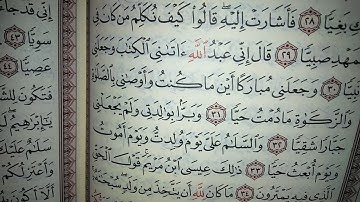 كِ بَغِيًّا ٢٨ فَأَشَارَتْ إِلَيْهِ قَالُوا۟ كَيْفَ نُكَلِّمُ مَن كَانَ فِى
ٱلْمَهْدِ صَبِيًّا ٢٩ قَالَ إِنِّى عَبْدُ ٱللَّهِ ءَاتَىٰنِىَ ٱلْكِتَٰبَ وَجَعَلَنِى
نَبِيًّا ٣٠ وَجَعَلَنِى مُبَارَكًا أَيْنَ مَا كُنتُ وَأَوْصَٰنِى بِٱلصَّلَوٰةِ
وَٱلزَّكَوٰةِ مَا دُمْتُ حَيًّا ٣١ وَبَرًّۢا بِوَٰلِدَتِى وَلَمْ يَجْعَلْنِى
جَبَّارًا شَقِيًّا ٣٢ وَٱلسَّلَٰمُ عَلَىَّ يَوْمَ وُلِدتُّ وَيَوْمَ أَمُوتُ
وَيَوْمَ أُبْعَثُ حَيًّا ٣٣ ذَٰلِكَ عِيسَى ٱبْنُ مَرْيَمَ قَوْلَ ٱلْحَقِّ
ٱلَّذِى فِيهِ يَمْتَرُونَ ٣٤ مَا كَانَ لِلَّهِ أَن يَتَّخِذَ مِن وَلَدٍ سُبْحَٰنَهُۥ
إِنِّى قَدْ جَآءَ
سَوِيًّا ٤٣
عَصِيًّا ٤٤
فَتَكُونَ لِلشَّيْ
يَٰٓإِبْرَٰهِيمُ لَ
سَلَٰمٌ عَلَيْكَ
وَأَعْتَزِلُكُمْ
أَلَّآ أَكُونَ بِ